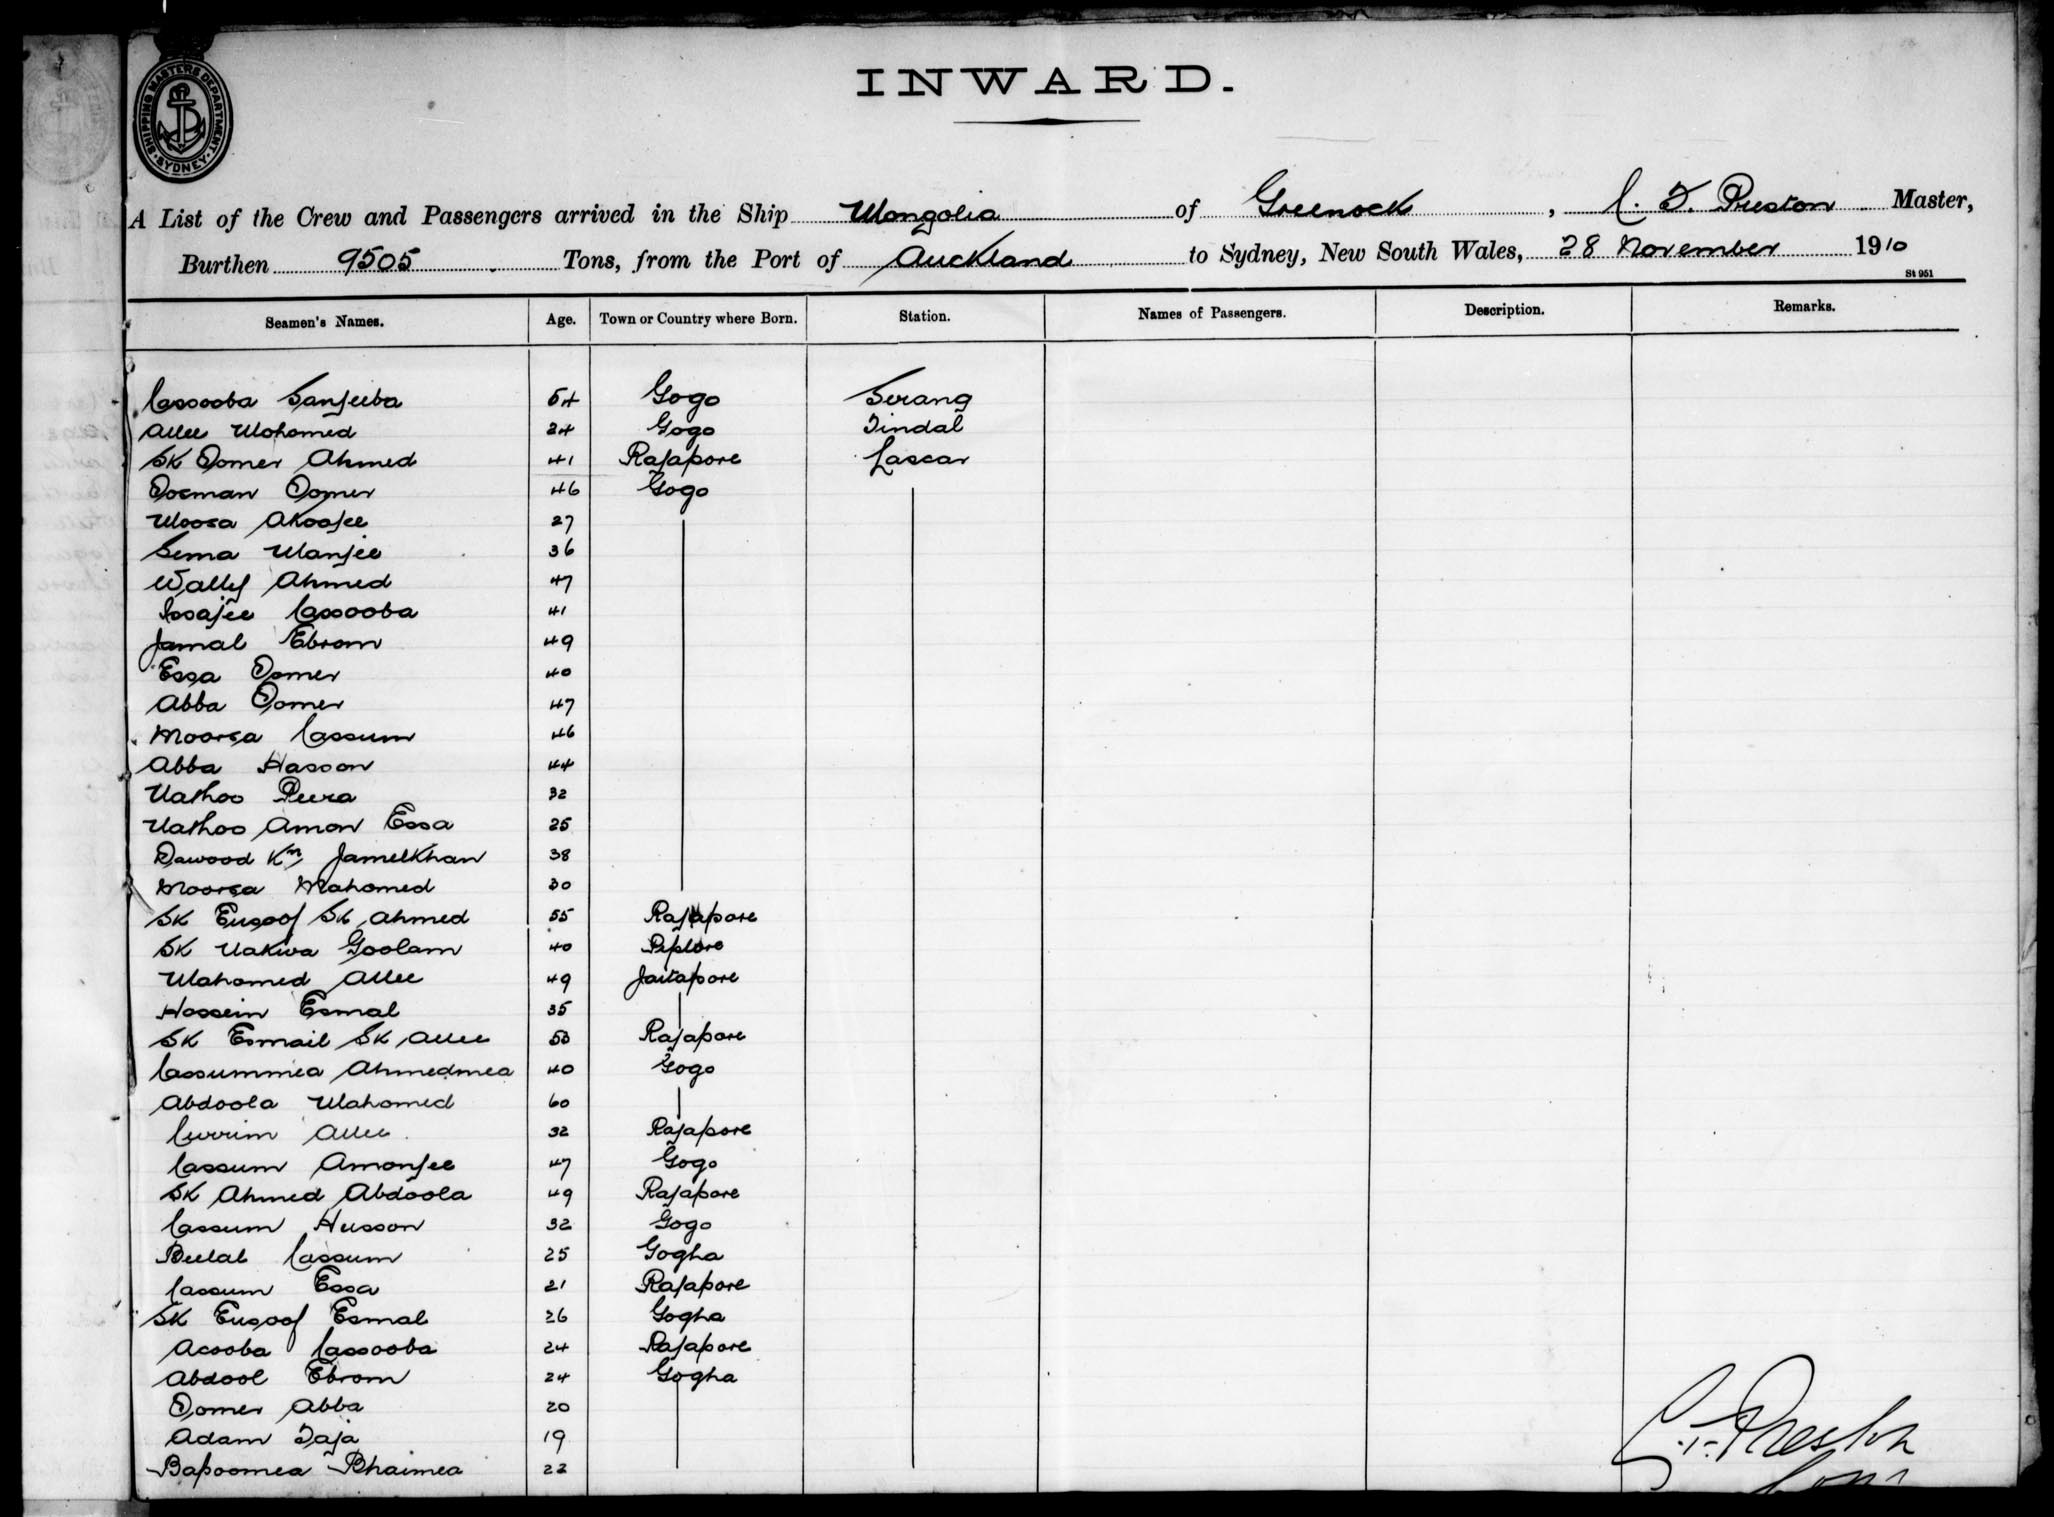 SHIPPING MASTERS DEPARTMENT · SYDNEY ·
INWARD.
A List of the Crew and Passengers arrived in the Ship Mongolia of Greenock, C. T. Preston Master,
Burthen 9505 Tons, from the Port of Auckland to Sydney, New South Wales, 28 November 1910
St 951
Seamen's Names. Age. Town or Country where Born. Station. Names of Passengers. Description. Remarks.
Cassooba Sanjeeba 54 Gogo Serang
Allee Mohomed 24 Gogo Tindal
SK Oomer Ahmed 41 Rajapore Lascar
Oosman Oomer 46 Gogo
Moosa Akoojee 27
Sema Manjee 36
Wally Ahmed 47
Issajee Cassooba 41
Jamal Ebrom 49
Essa Oomer 40
Abba Oomer 47
Moorsa Cassum 46
Abba Hasson 44
Nathoo Peera 32
Nathoo Amon Essa 25
Dawood Kn Jamelkhan 38
Moorsa Mahomed 30
SK Eusoof SK Ahmed 55 Rajapore
SK Nakwa Goolam 40
Mahomed Allee 49 Jaitapore
Hossein Esmal 35
SK Esmail SK Allee 53 Rajapore
Cassummea Ahmedmea 40 Gogo
Abdoola Mahomed 60
Currim Allee 32 Rajapore
Cassum Amonjee 47 Gogo
SK Ahmed Abdoola 49 Rajapore
Cassum Husson 32 Gogo
Beelal Cassum 25 Gogha
Cassum Essa 21 Rajapore
SK Eusoof Esmal 26 Gogha
Acooba Cassooba 24 Rajapore
Abdool Ebrom 24 Gogha
Oomer Abba 20
Adam Taja 19
Bapoomea Bhaimea 22
C. T. Preston